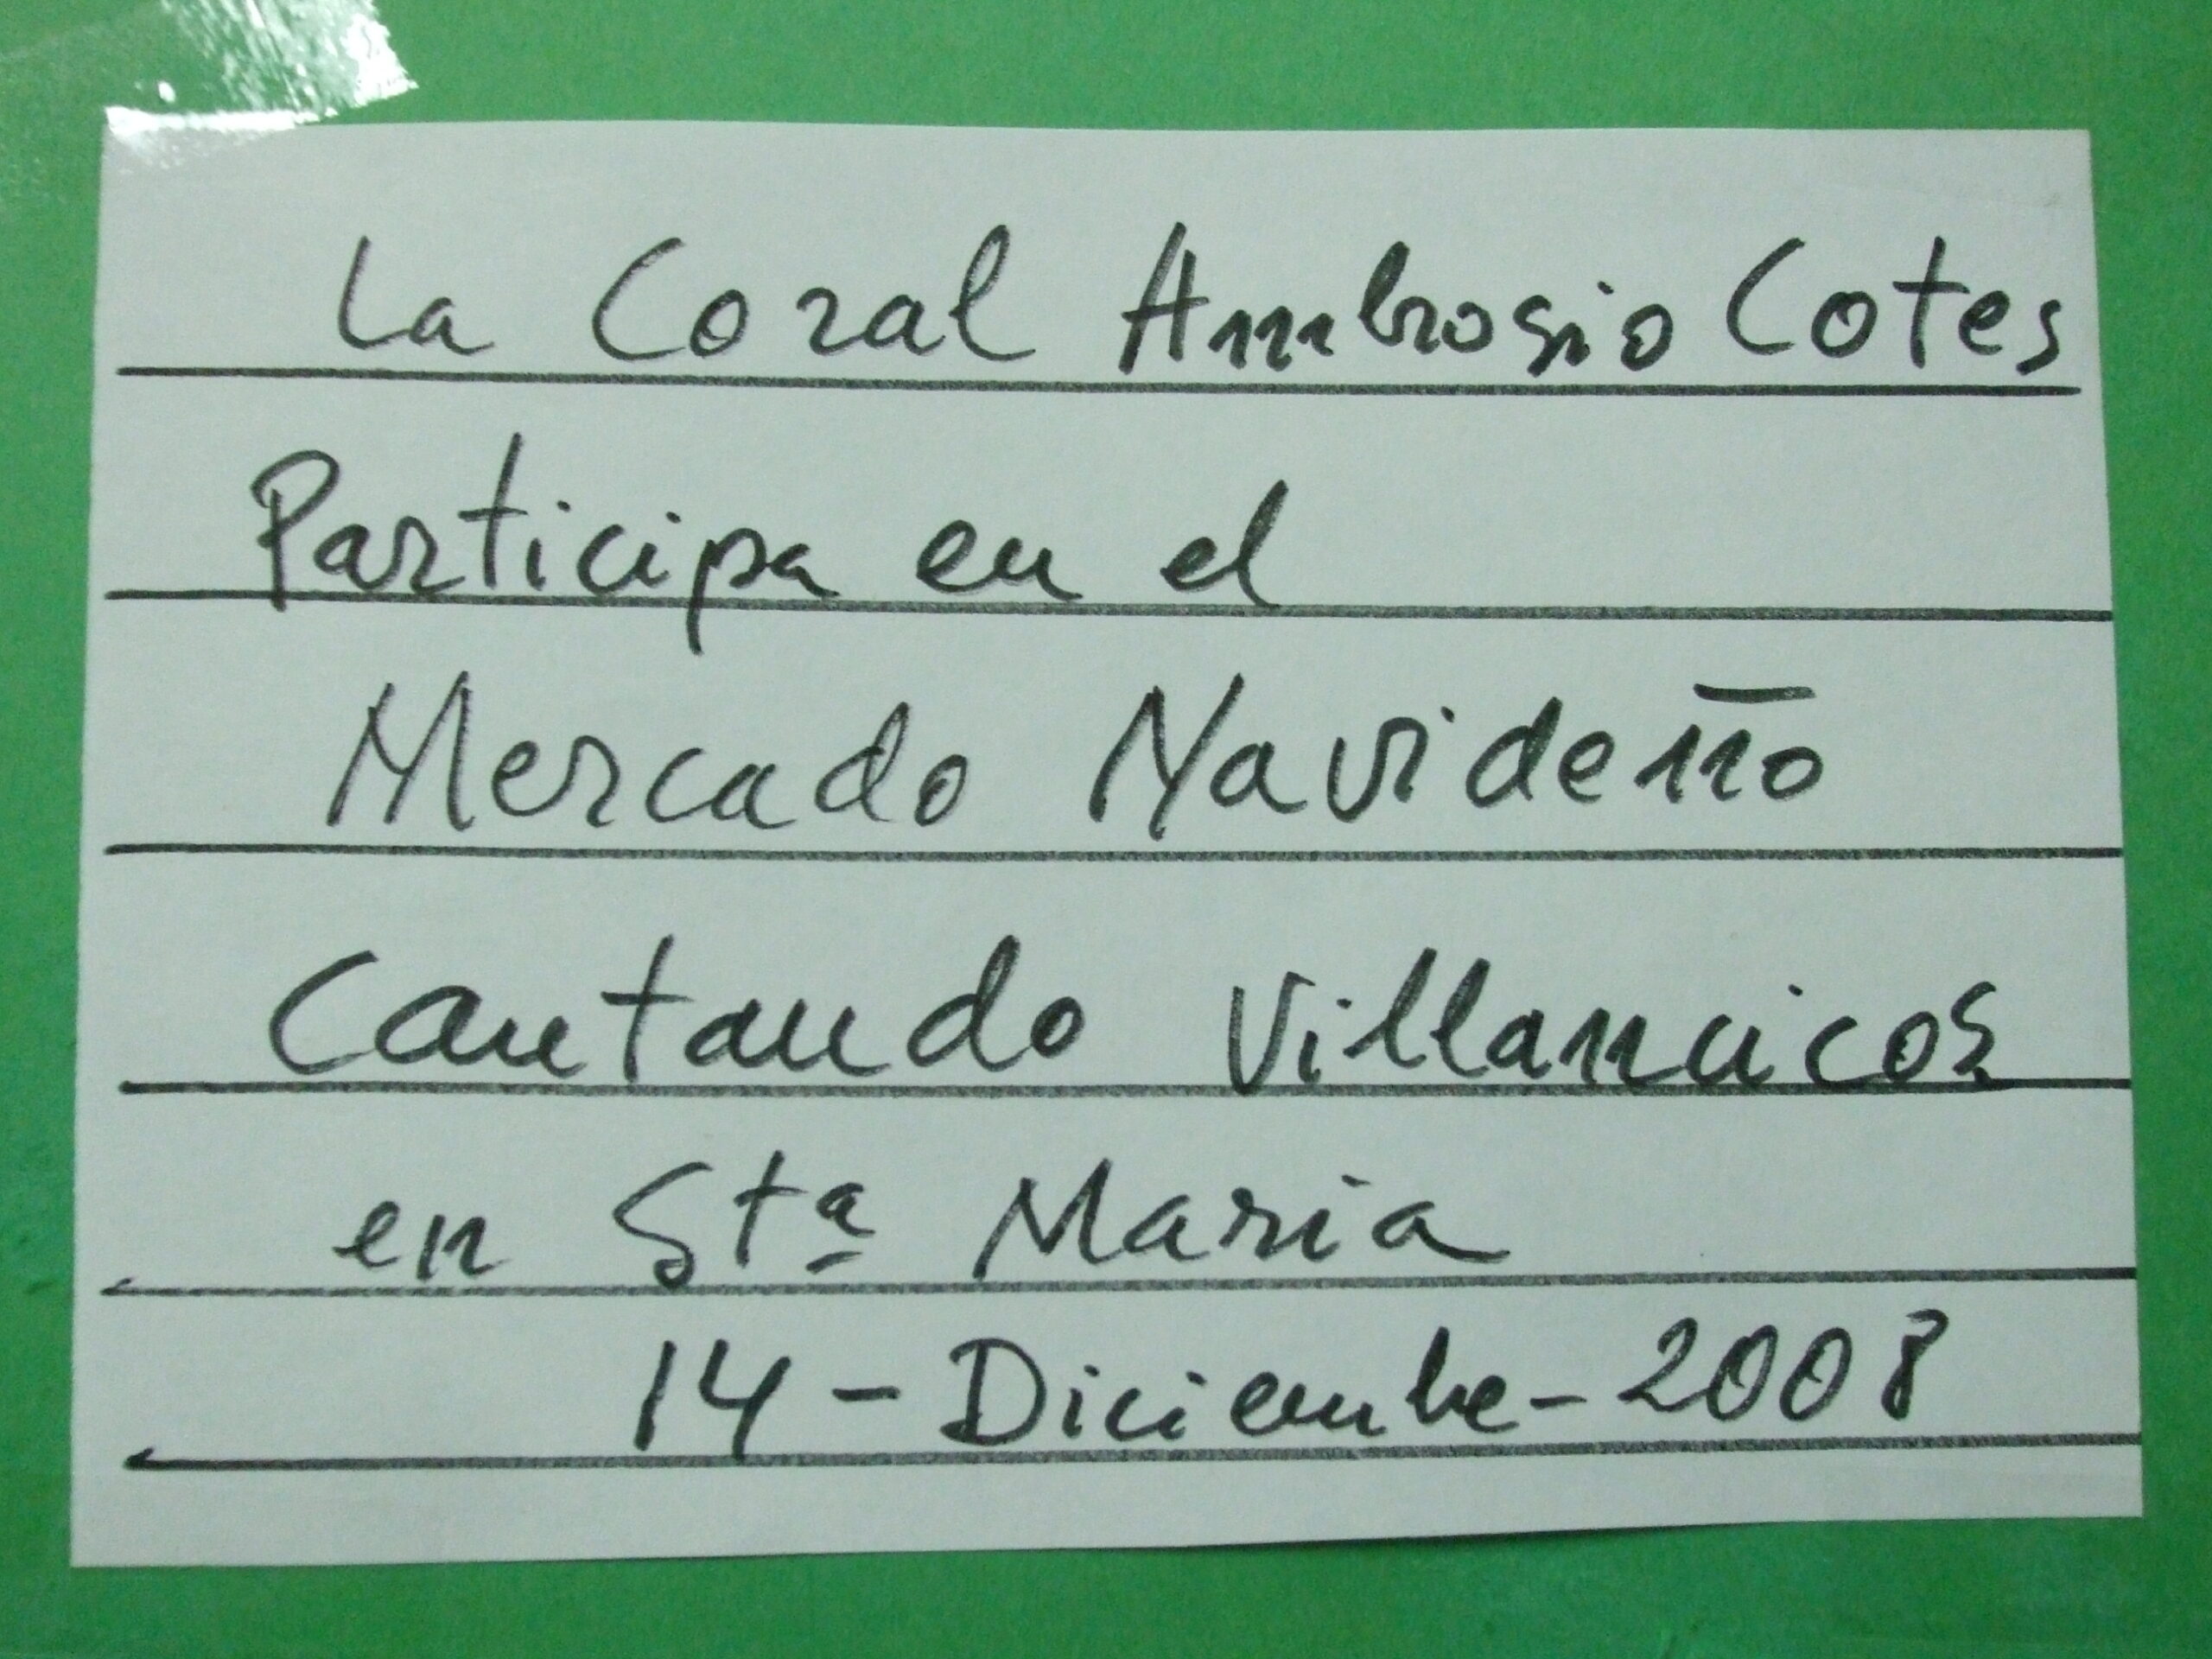 La Coral Ambrosio Cotes
Participa en el
Mercado Navideño
Cantando Villancicos
en Stª Maria
14 - Diciembre - 2008